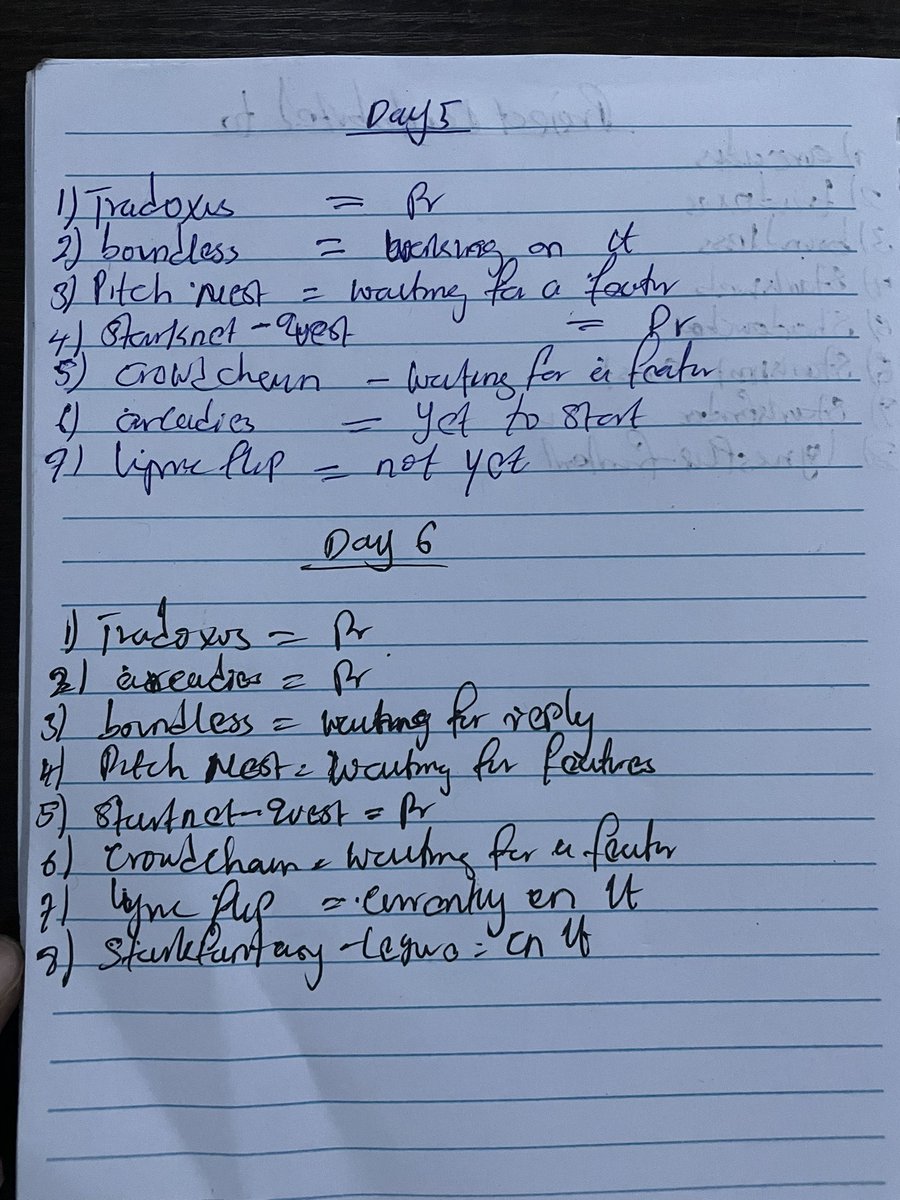 Day 5
1) Tradoxus = Pr
2) boundless = working on it
3) Pitch Nest = waiting for a featur
4) Starknet-Quest = Pr
5) Crowdchain - waiting for a featur
6) arcadies = Yet to Start
7) Lync flip = not yet
Day 6
1) Tradoxus = Pr
2) arcadies = Pr
3) boundless = waiting for reply
4) Pitch Nest = Waiting for features
5) Starknet-Quest = Pr
6) Crowdchain = Waiting for a featur
7) lync flip = currently on it
8) Starkfantasy-= on it